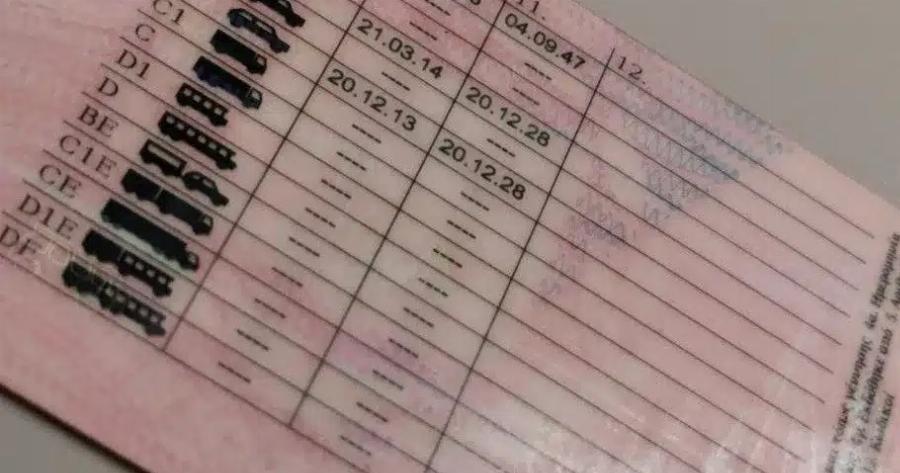 11.
12.
04.09.47
----
----
21.03.14 20.12.28
---- ----
20.12.13 20.12.28
C1 ---- ----
C ---- ----
D1 ---- ----
D ---- ----
BE ---- ----
C1E ---- ----
CE ---- ----
D1E ---- ----
DE ---- ----